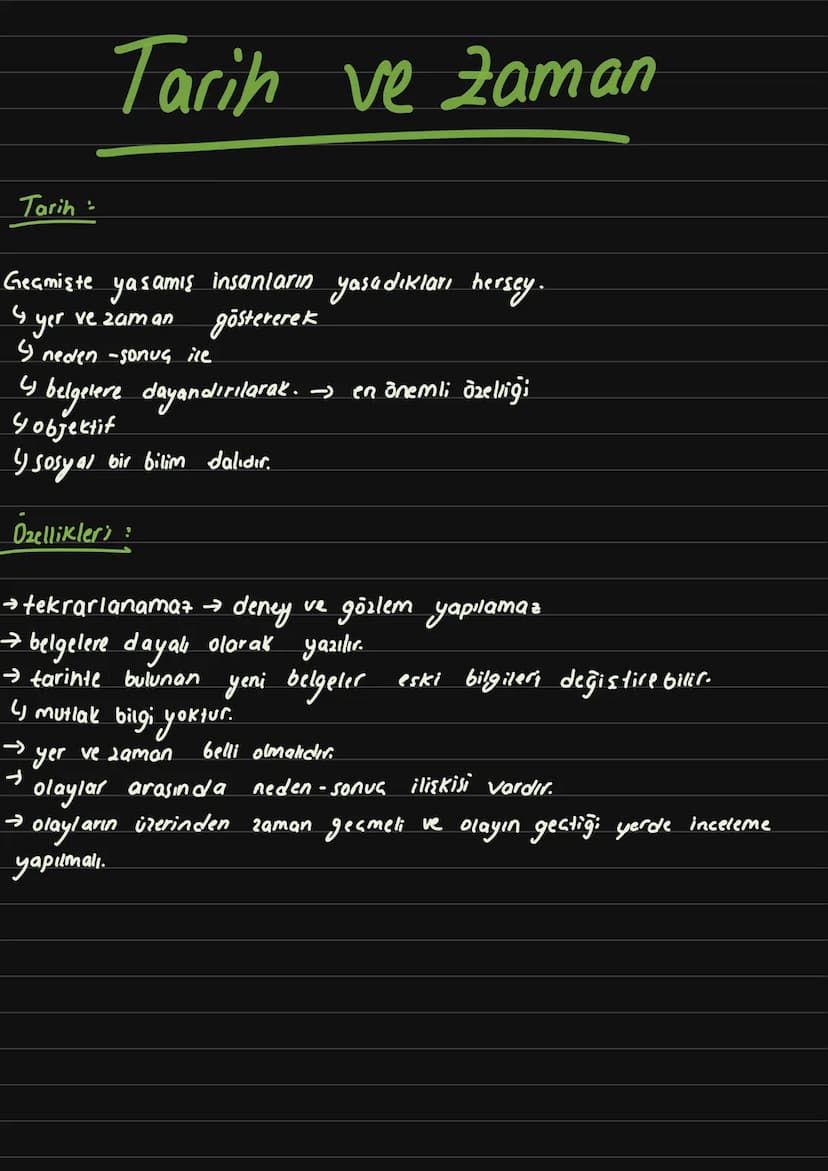 Tarih ve zaman
Tarih :
Geçmişte yaşamış insanların yaşadıkları herşey.
↳ yer ve zaman göstererek
↳ neden-sonuç ile
↳ belgelere dayandırılarak. → en önemli özelliği
↳ objektif
↳ sosyal bir bilim dalıdır.
Özellikleri :
→ tekrarlanamaz → deney ve gözlem yapılamaz
→ belgelere dayalı olarak yazılır.
→ tarihte bulunan yeni belgeler eski bilgileri değiştirebilir.
↳ mutlak bilgi yoktur.
→ yer ve zaman belli olmalıdır.
→ olaylar arasında neden-sonuç ilişkisi vardır.
→ olayların üzerinden zaman geçmeli ve olayın geçtiği yerde inceleme
yapılmalı.